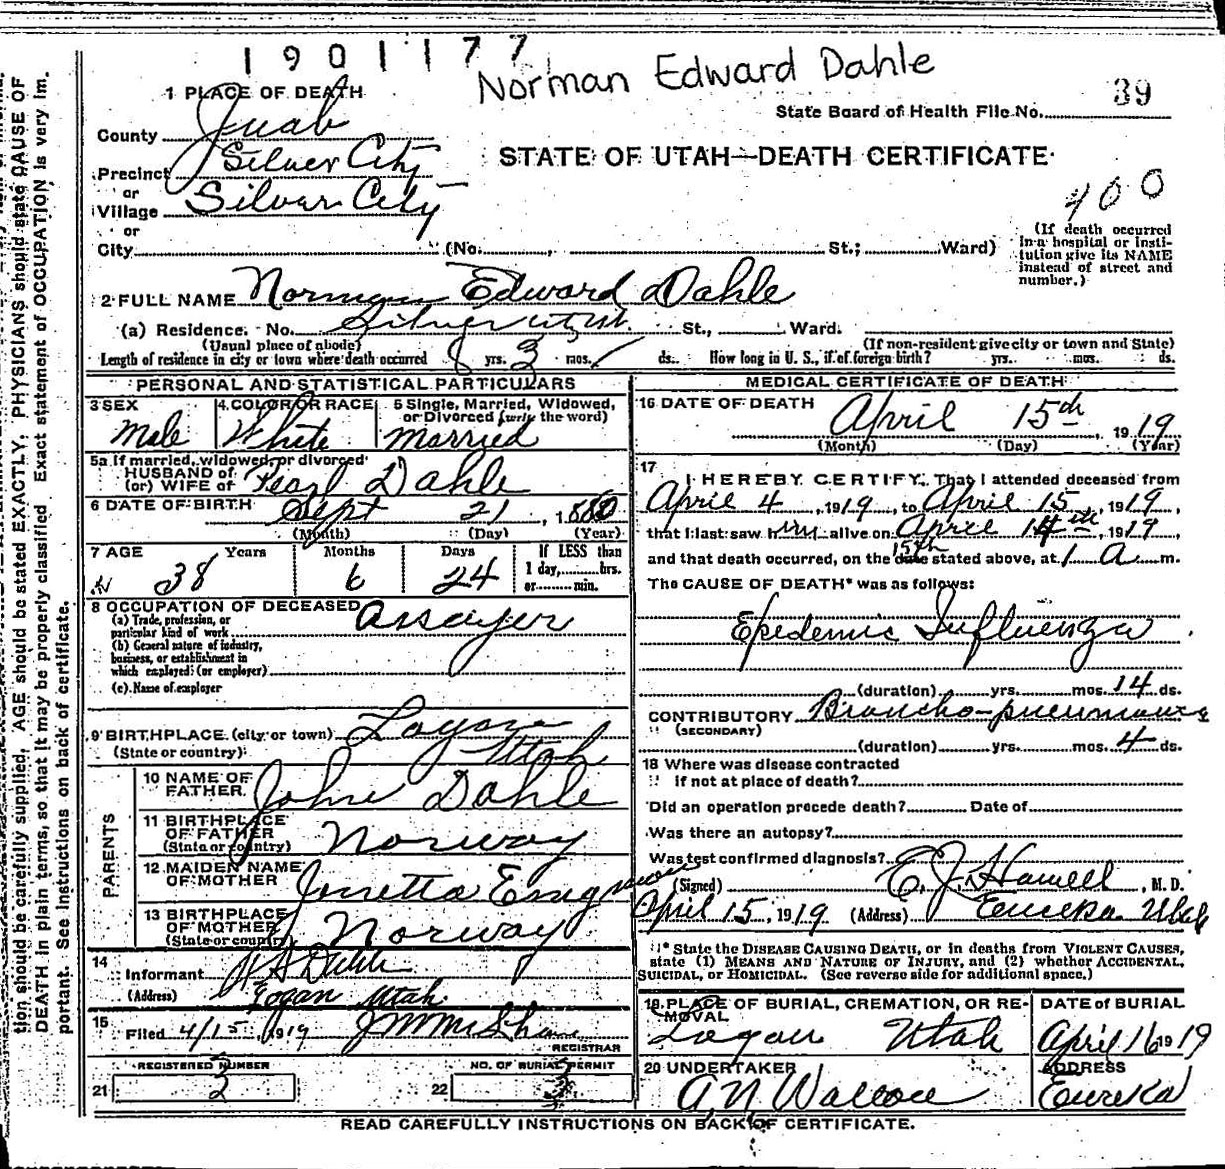 1901177
Norman Edward Dahle
39
1 PLACE OF DEATH
State Board of Health File No.
County Juab
STATE OF UTAH—DEATH CERTIFICATE
Precinct Silver City
or
Village Silver City
400
or
City (No. St.; Ward)
(If death occurred in a hospital or institution give its NAME instead of street and number.)
2 FULL NAME Norman Edward Dahle
(a) Residence. No. Silver City Ut. St., Ward.
(Usual place of abode) (If non-resident give city or town and State)
Length of residence in city or town where death occurred 8 yrs. 3 mos. 1 ds. How long in U. S., if of foreign birth? yrs. mos. ds.
PERSONAL AND STATISTICAL PARTICULARS
3 SEX 4 COLOR OR RACE 5 Single, Married, Widowed, or Divorced (write the word)
Male White Married
5a If married, widowed, or divorced
HUSBAND of
(or) WIFE of Pearl Dahle
6 DATE OF BIRTH Sept 21, 1880
(Month) (Day) (Year)
7 AGE Years Months Days If LESS than
38 6 24 1 day, hrs.
or min.
8 OCCUPATION OF DECEASED Assayer
(a) Trade, profession, or
particular kind of work
(b) General nature of industry,
business, or establishment in
which employed (or employer)
(c) Name of employer
9 BIRTHPLACE (city or town) Logan
(State or country) Utah
PARENTS
10 NAME OF FATHER John Dahle
11 BIRTHPLACE OF FATHER (State or country) Norway
12 MAIDEN NAME OF MOTHER Jonetta
13 BIRTHPLACE OF MOTHER (State or country) Norway
14 Informant Dahle
(Address) Logan Utah
15 Filed 4/15, 1919
REGISTRAR
REGISTERED NUMBER NO. OF BURIAL PERMIT
21 3 22 3
MEDICAL CERTIFICATE OF DEATH
16 DATE OF DEATH April 15th, 1919
(Month) (Day) (Year)
17 I HEREBY CERTIFY, That I attended deceased from
April 4, 1919, to April 15, 1919,
that I last saw him alive on April 14th, 1919,
and that death occurred, on the 15th date stated above, at 1 a m.
The CAUSE OF DEATH* was as follows:
Epedemic Influenza
(duration) yrs. mos. 14 ds.
CONTRIBUTORY Broncho-pneumonia
(SECONDARY)
(duration) yrs. mos. 4 ds.
18 Where was disease contracted
if not at place of death?
Did an operation precede death? Date of
Was there an autopsy?
Was test confirmed diagnosis?
(Signed) E. J. Howell, M. D.
April 15, 1919 (Address) Eureka Utah
* State the DISEASE CAUSING DEATH, or in deaths from VIOLENT CAUSES,
state (1) MEANS AND NATURE OF INJURY, and (2) whether ACCIDENTAL,
SUICIDAL, or HOMICIDAL. (See reverse side for additional space.)
19 PLACE OF BURIAL, CREMATION, OR REMOVAL DATE of BURIAL
Logan Utah April 16 1919
20 UNDERTAKER ADDRESS
A. N. Wallace Eureka
READ CAREFULLY INSTRUCTIONS ON BACK OF CERTIFICATE.
tion should be carefully supplied. AGE should be stated EXACTLY. PHYSICIANS should state CAUSE OF
DEATH in plain terms, so that it may be properly classified. Exact statement of OCCUPATION is very im-
portant. See Instructions on back of certificate.